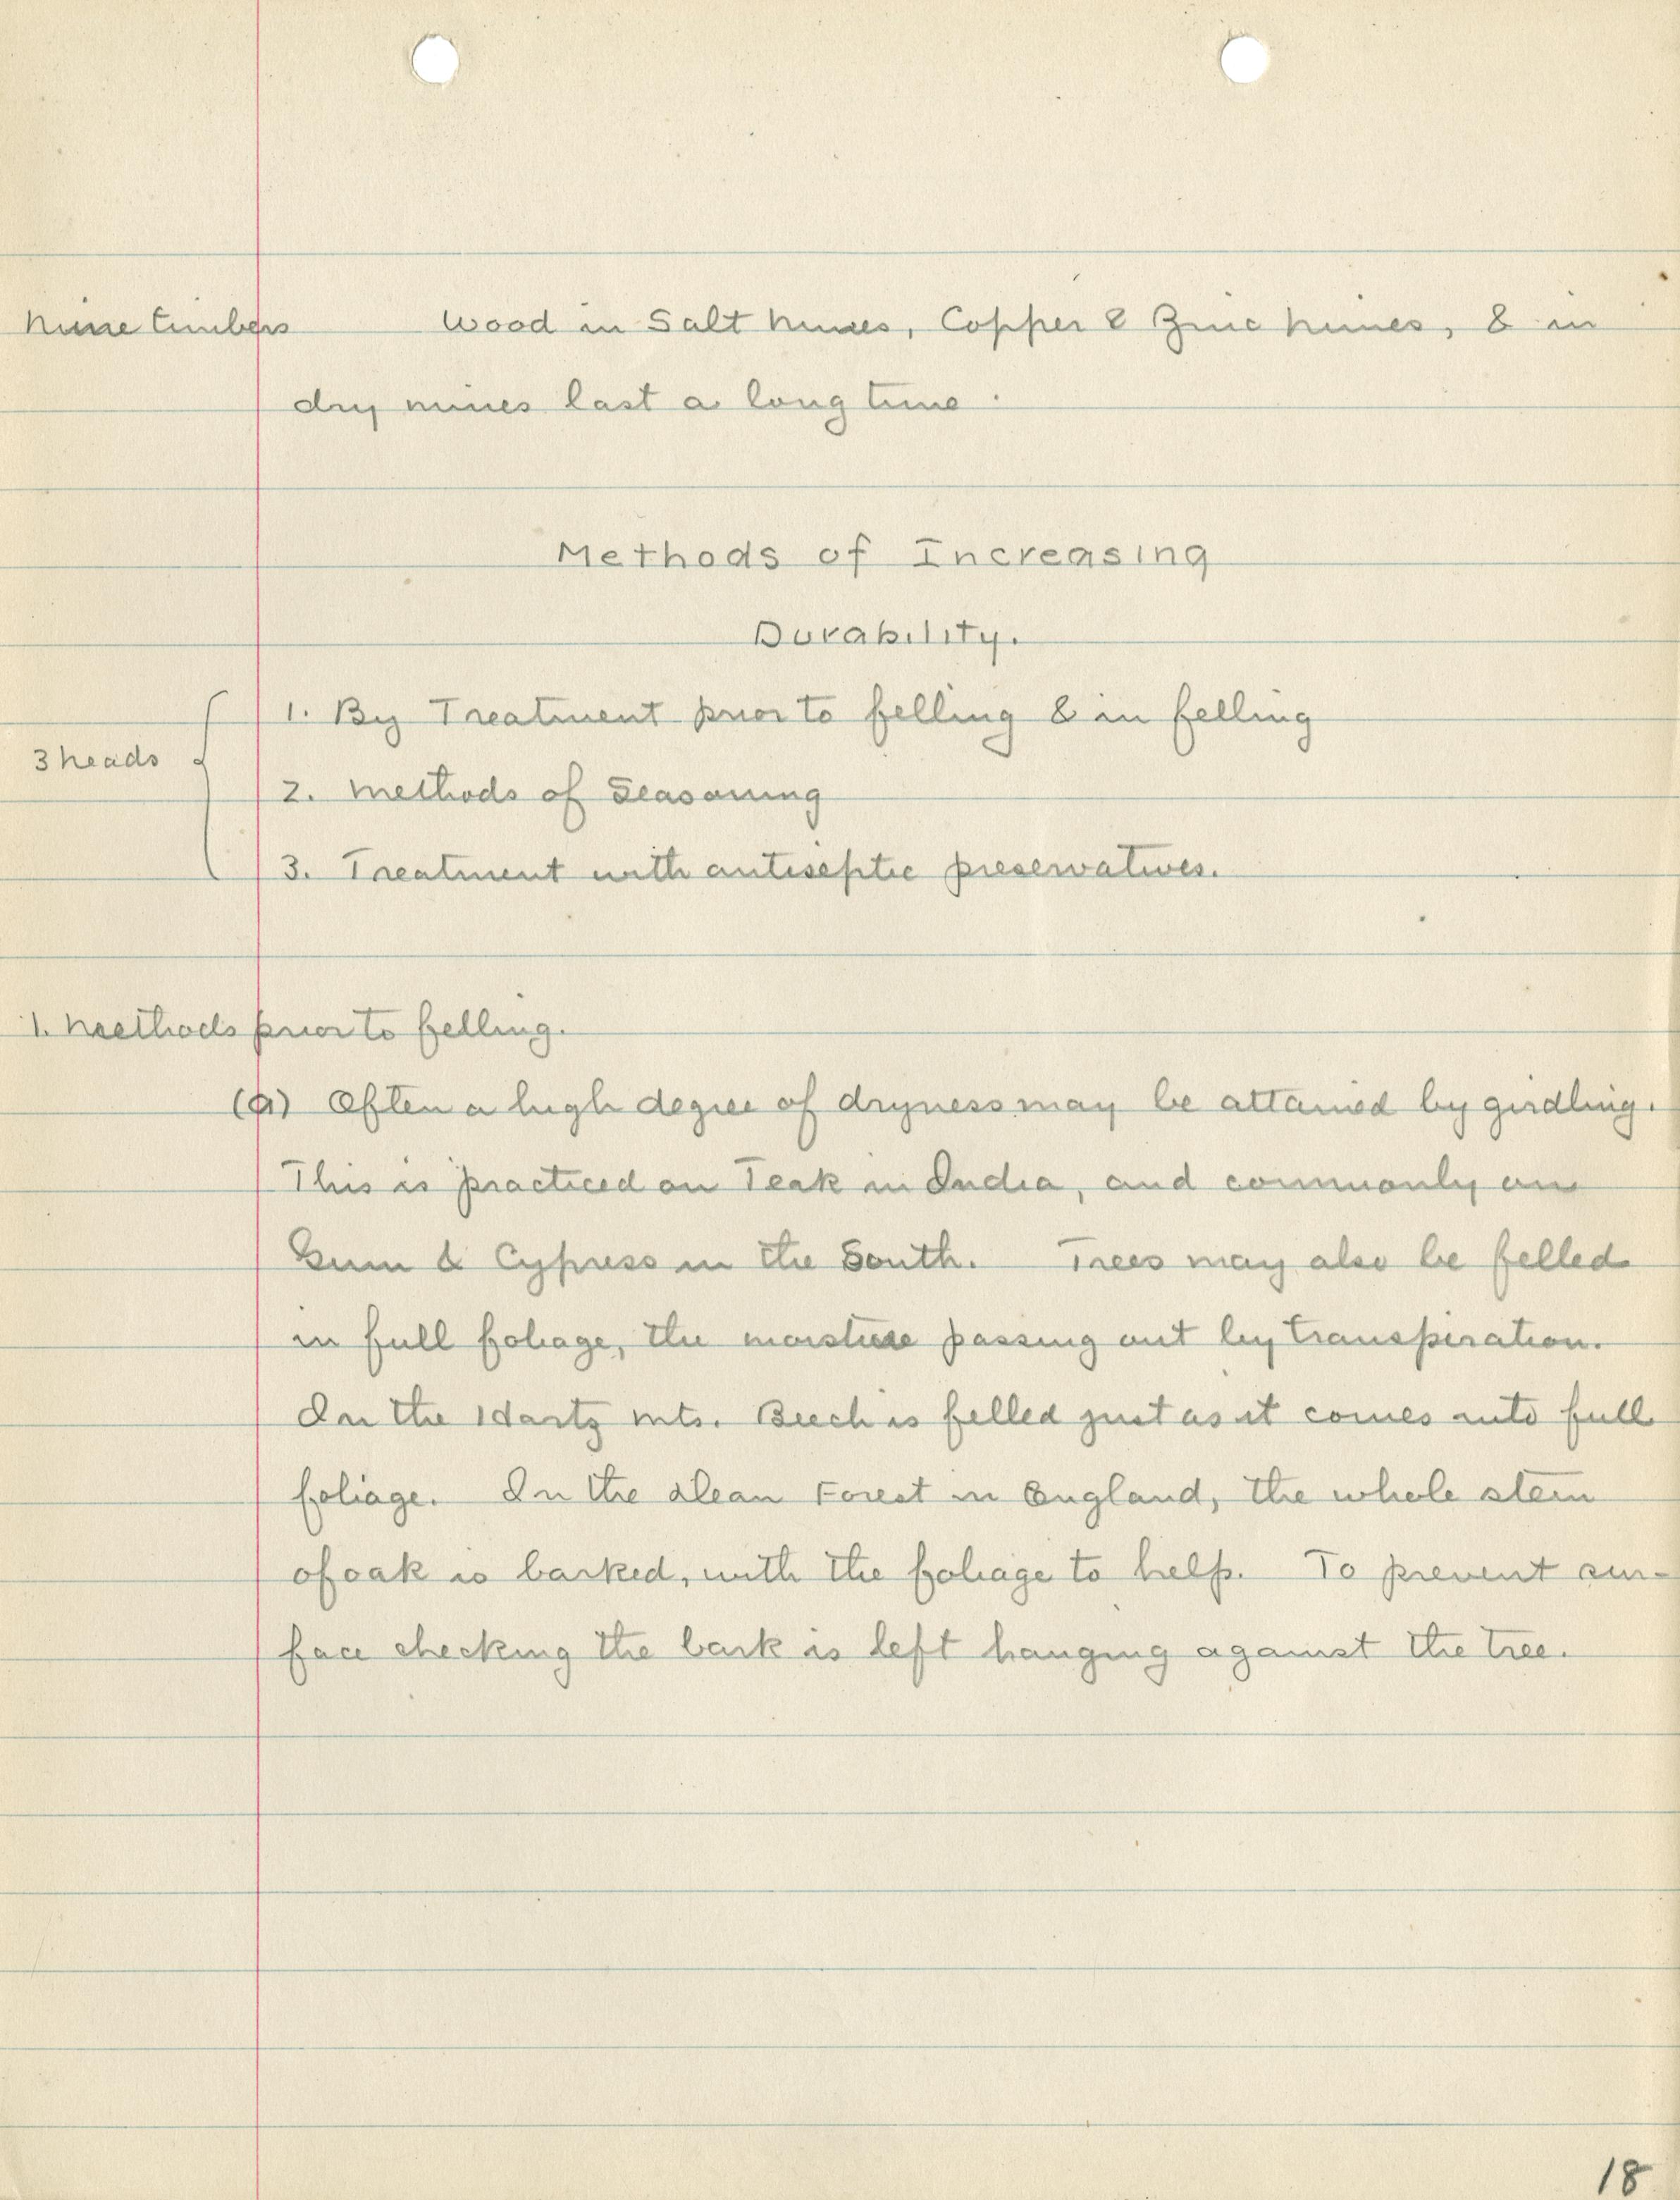 Mine timbers Wood in Salt Mines, Copper & Zinc Mines, & in
dry mines last a long time.
Methods of Increasing
Durability.
1. By Treatment prior to felling & in felling
3 heads
2. Methods of Seasoning
3. Treatment with antiseptic preservatives.
1. Methods prior to felling.
(a) Often a high degree of dryness may be attained by girdling.
This is practiced on Teak in India, and commonly on
Gum & Cypress in the South. Trees may also be felled
in full foliage, the moisture passing out by transpiration.
In the Hartz mts. Beech is felled just as it comes into full
foliage. In the Dean Forest in England, the whole stem
of oak is barked, with the foliage to help. To prevent sur-
face checking the bark is left hanging against the tree.
18